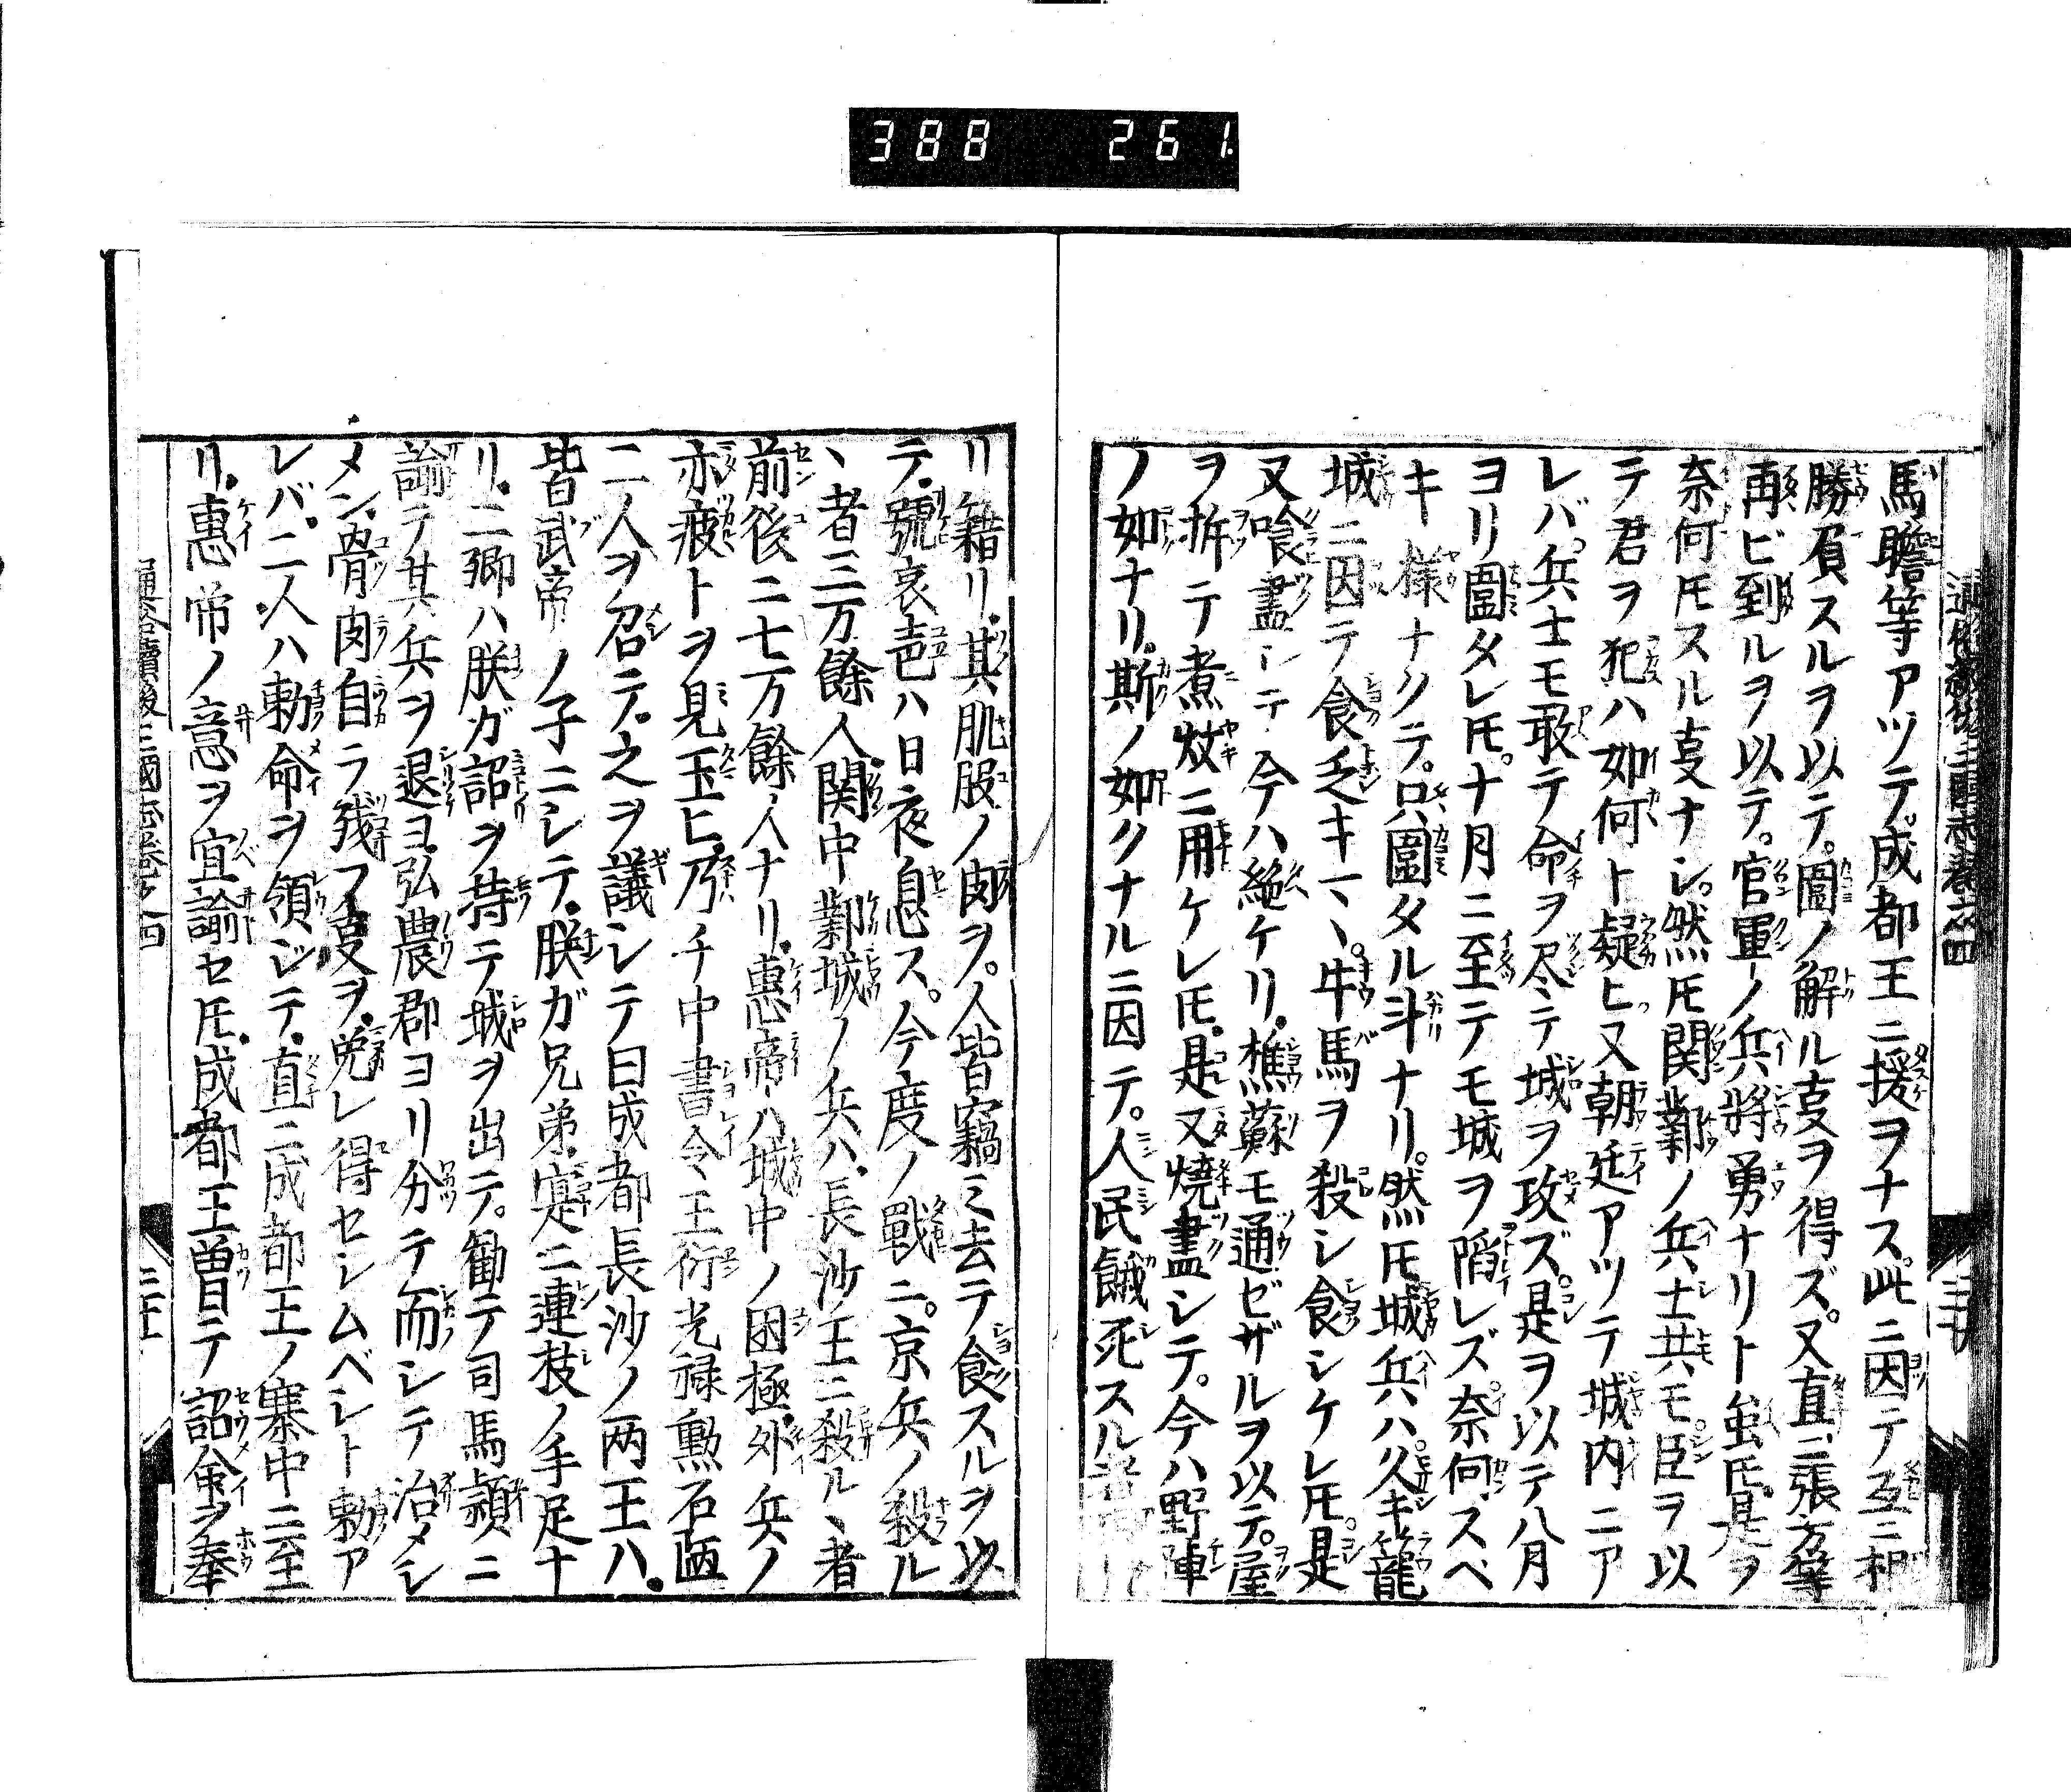 388 261
馬瞻等アツテ。成都王ニ援ヲナス。此ニ因テ互ニ相
勝負スルヲ以テ。圍ノ解ル叓ヲ得ズ。又直ニ張方等
再ビ到ルヲ以テ。官軍ノ兵將勇ナリト雖𪜈。是ヲ
奈何𪜈スル叓ナシ。然𪜈関鄴ノ兵士共モ。臣ヲ以
テ君ヲ犯ハ如何ト疑ヒ又朝廷アツテ城内ニア
レバ。兵士モ敢テ命ヲ尽シテ城ヲ攻ズ。是ヲ以テ八月
ヨリ圍タレ𪜈。十月ニ至テモ城ヲ陷レズ。奈何スベ
キ様ナクテ。只圍タル斗ナリ。然𪜈城兵ハ。久キ籠
城ニ因テ食乏キ一ヽ。牛馬ヲ殺シ食シケレ𪜈。是
又喰盡シテ今ハ絶ケリ。樵蘇モ通ゼザルヲ以テ。屋
ヲ拆テ煮炊ニ用ケレ𪜈。是又燒盡シテ。今ハ野陣
ノ如ナリ。斯ノ如クナルニ因テ。人民餓死スル者
リ籍リ。其肌股ノ肉ヲ。人皆竊ミ去テ食スルヲ以
テ。號哀声ハ日夜息ス。今度ノ戰ニ。京兵ノ殺ル
ヽ者三万餘人。関中鄴城ノ兵ハ。長沙王ニ殺ルヽ者
前後ニ七万餘人ナリ。惠帝ハ城中ノ困極。外兵ノ
亦疲トヲ見玉ヒ。乃チ中書令王衍光禄勲石陋
二人ヲ召テ。之ヲ議シテ曰成都長沙ノ両王ハ。
皆武帝ノ子ニシテ。朕ガ兄弟。寔ニ連枝ノ手足ナ
リ。二卿ハ朕ガ詔ヲ持テ城ヲ出テ。勧テ司馬穎ニ
諭テ其兵ヲ退ヨ。弘農郡ヨリ分テ而シテ治メシ
メン。骨肉自ラ殘フ叓ヲ。免レ得セシムベシト勅ア
レバ。二人ハ勅命ヲ領ジテ。直ニ成都王ノ寨中ニ至
リ。惠帝ノ意ヲ宜諭セ𪜈。成都王曽テ詔命ヲ奉
通俗續後三國志卷之四
二十